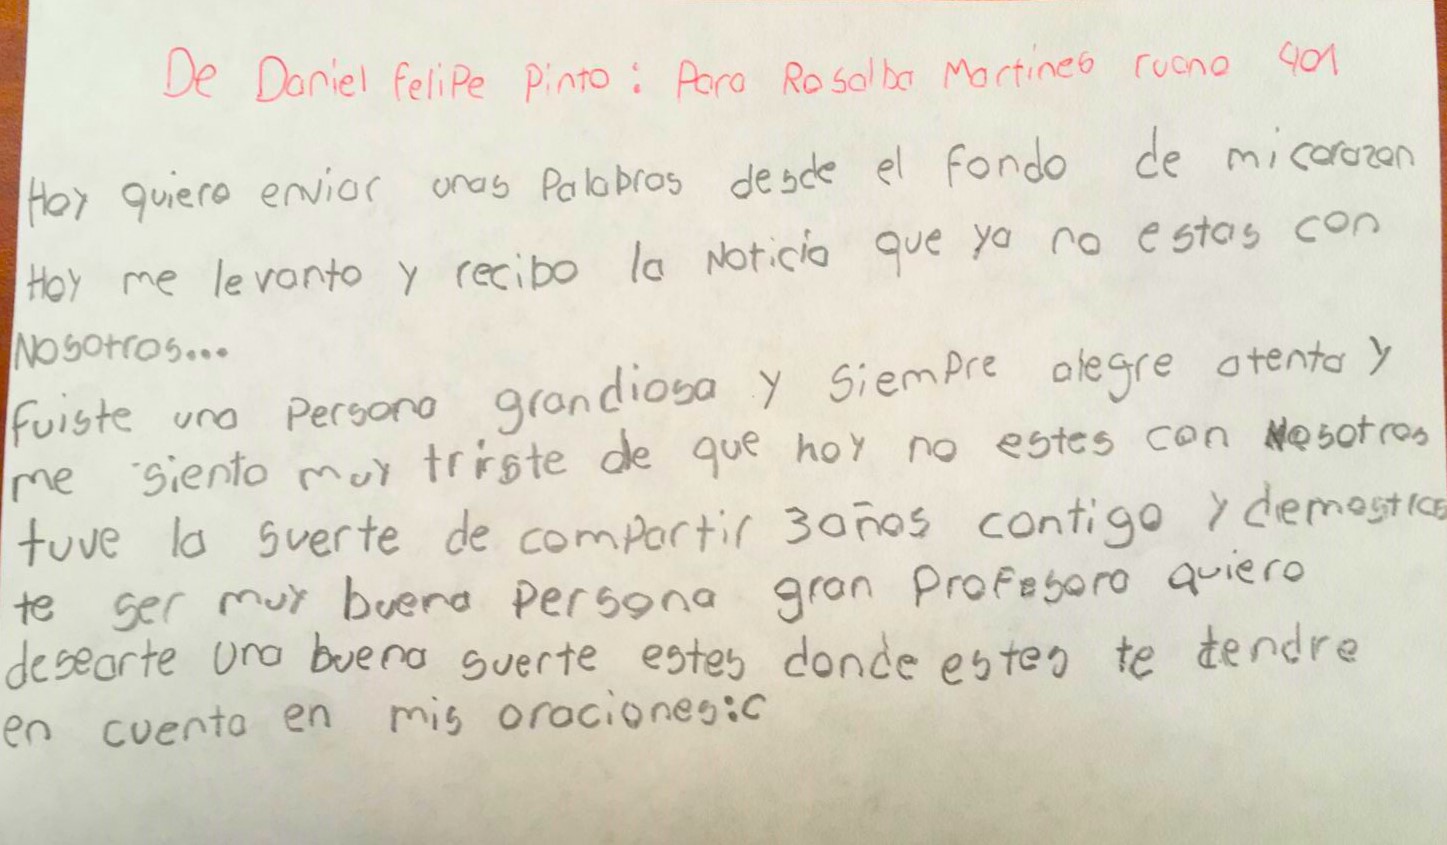 De Daniel Felipe Pinto: Para Rosalba Martines ruano 401
Hoy quiero enviar unas Palabras desde el fondo de mi corazon
Hoy me levanto y recibo la Noticia que ya no estas con
Nosotros...
fuiste una Persona grandiosa y siempre alegre atenta y
me siento muy triste de que hoy no estes con Nosotros
tuve la suerte de compartir 3 años contigo y demostras
te ser muy buena Persona gran Profesora quiero
desearte una buena suerte estes donde estes te tendre
en cuenta en mis oraciones:c